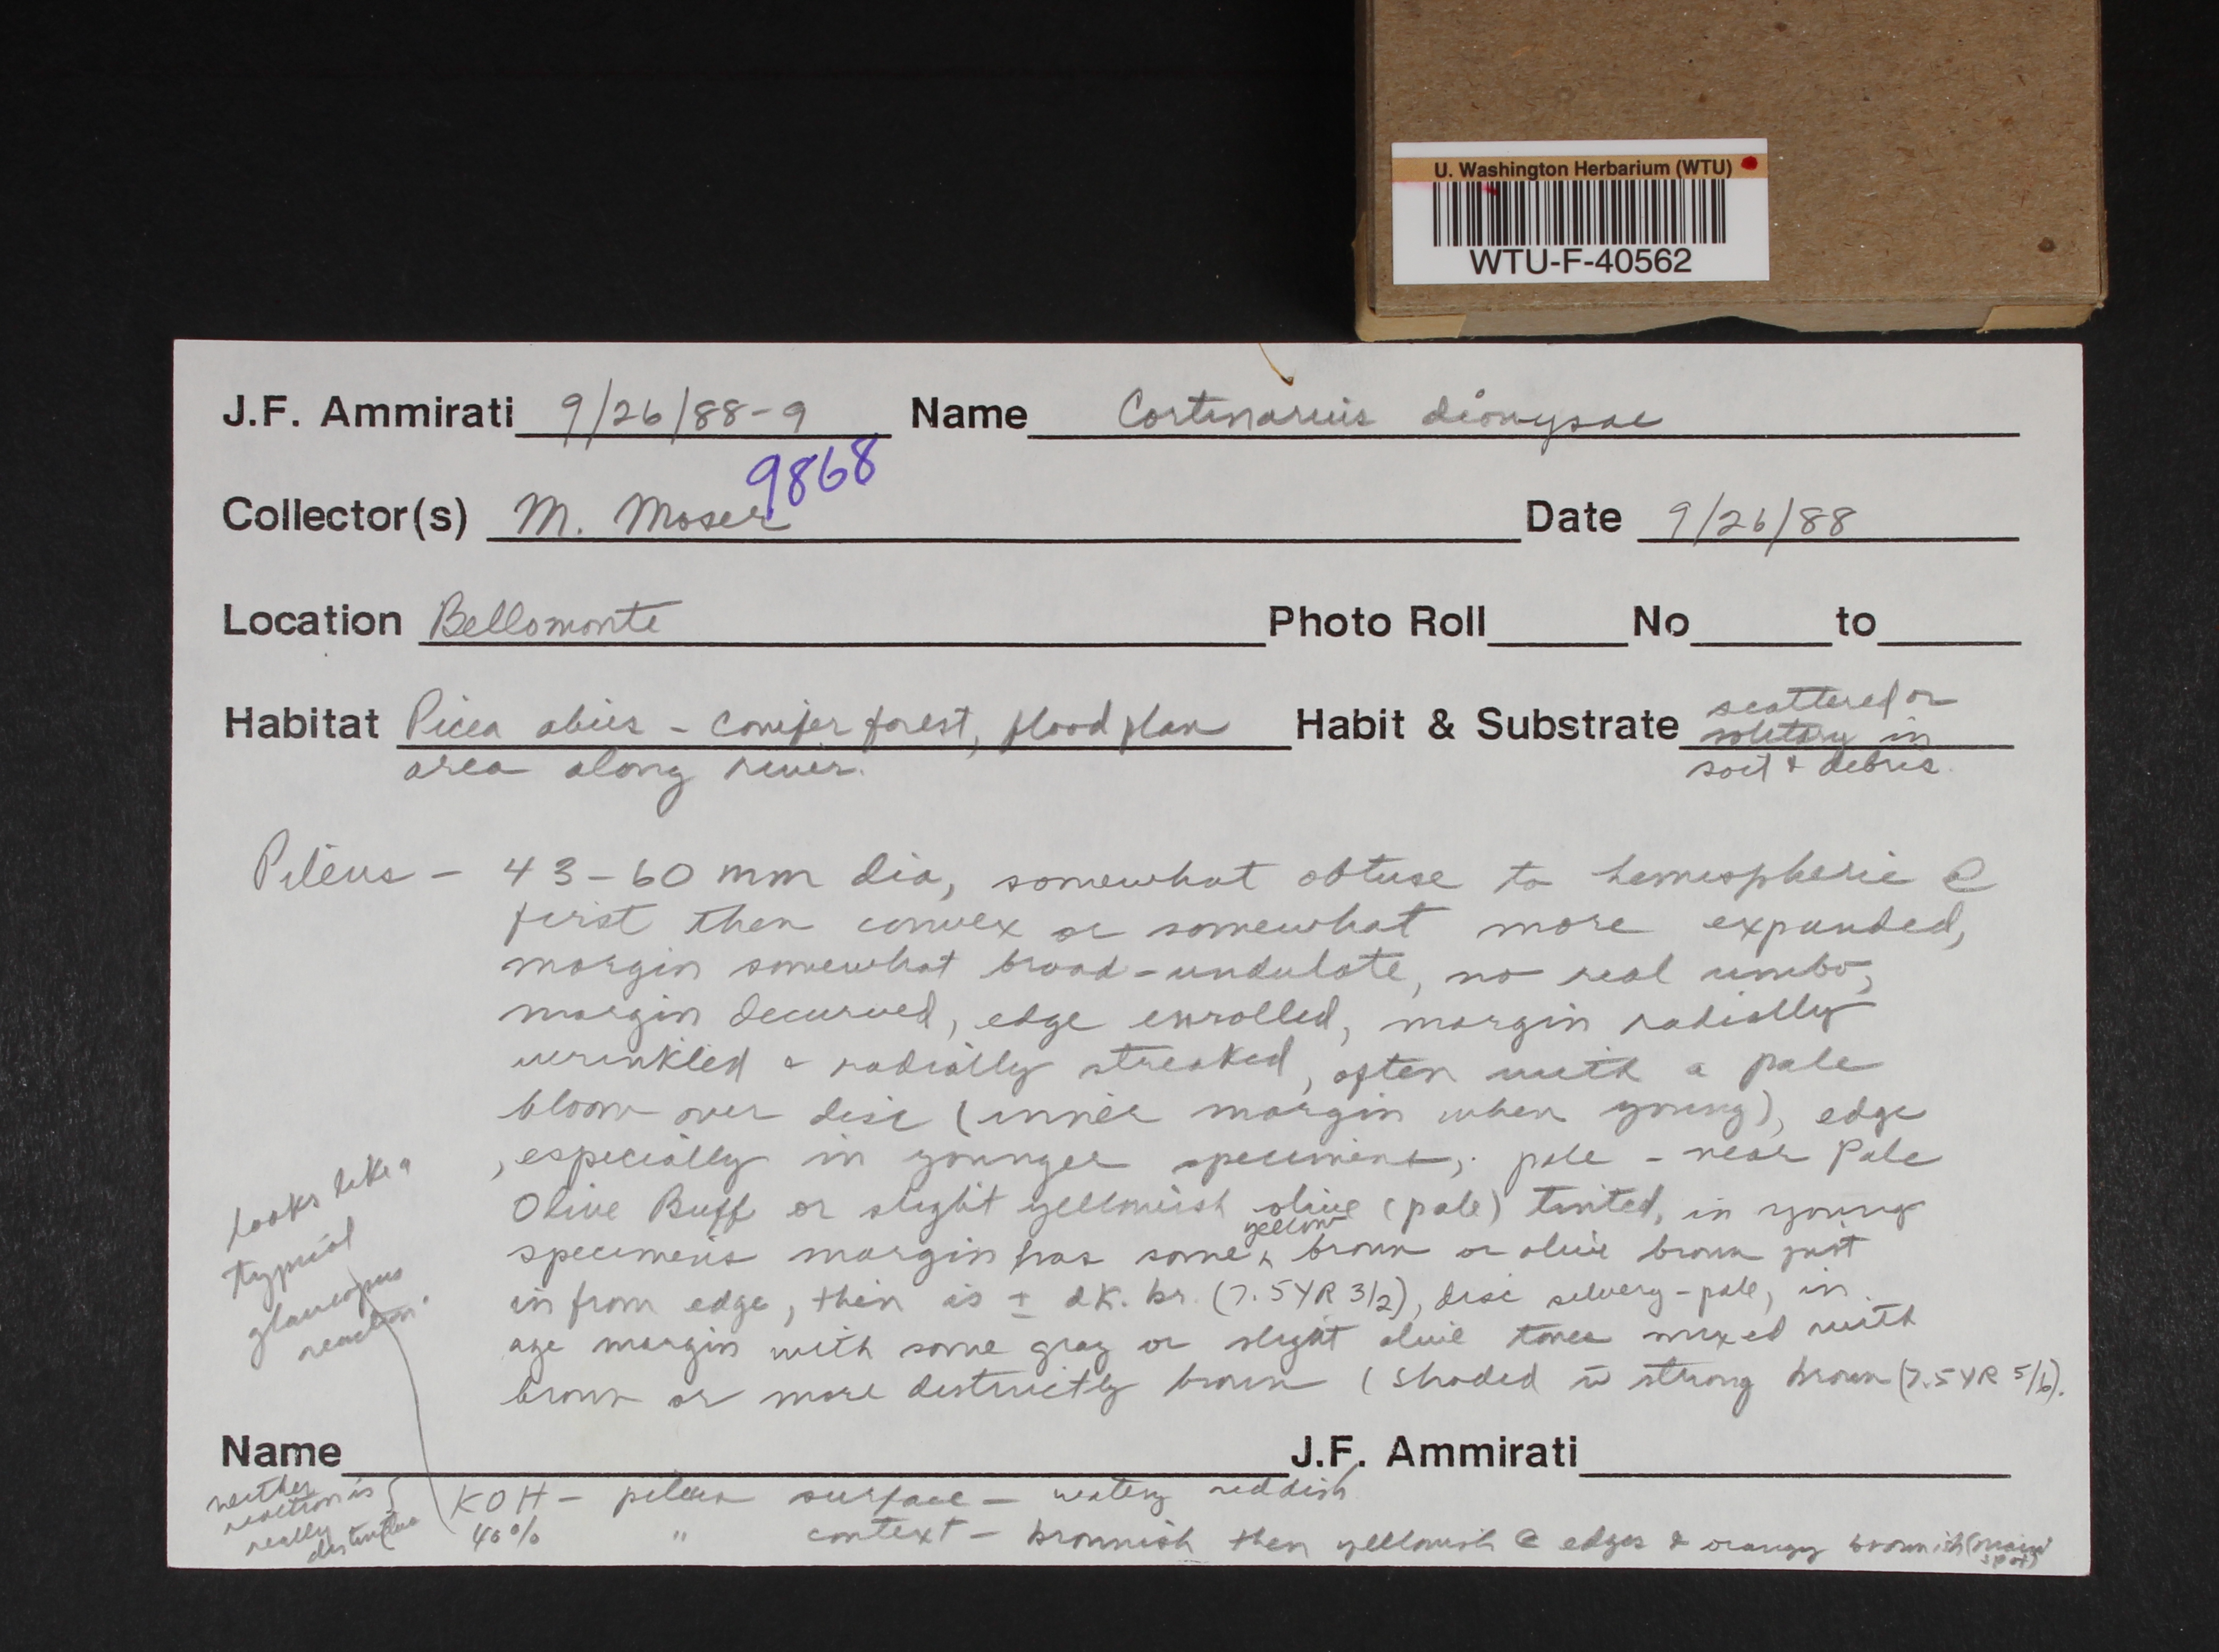 U. Washington Herbarium (WTU)
WTU-F-40562
J.F. Ammirati 9/26/88-9 Name Cortinarius dionysae
9868
Collector(s) M. Moser Date 9/26/88
Location Bellomonte Photo Roll No to
Habitat Picea abies - conifer forest, flood plan Habit & Substrate scattered or
solitary in
area along river. soil & debris.
Pileus - 43-60 mm dia, somewhat obtuse to hemispheric @
first then convex or somewhat more expanded,
margin somewhat broad-undulate, no real umbo,
margin decurved, edge enrolled, margin radially
wrinkled & radially streaked, often with a pale
bloom over disc (inner margin when young), edge
, especially in younger specimens, pale - near Pale
Olive Buff or slight yellowish olive (pale) tinted, in young
yellow
specimens margin has some ^ brown or olive brown just
in from edge, then is ± dk. br. (7.5YR 3/2), disc silvery-pale, in
age margin with some gray or slight olive tones mixed with
brown or more distinctly brown (shaded w̄ strong brown (7.5YR 5/6).
looks like a
typical
glaucopus
reaction.
Name J.F. Ammirati
neither
reaction is
really
distinctive
KOH - pileus surface - watery reddish
40% " context - brownish then yellowish @ edges & orangy brownish (main
spot)